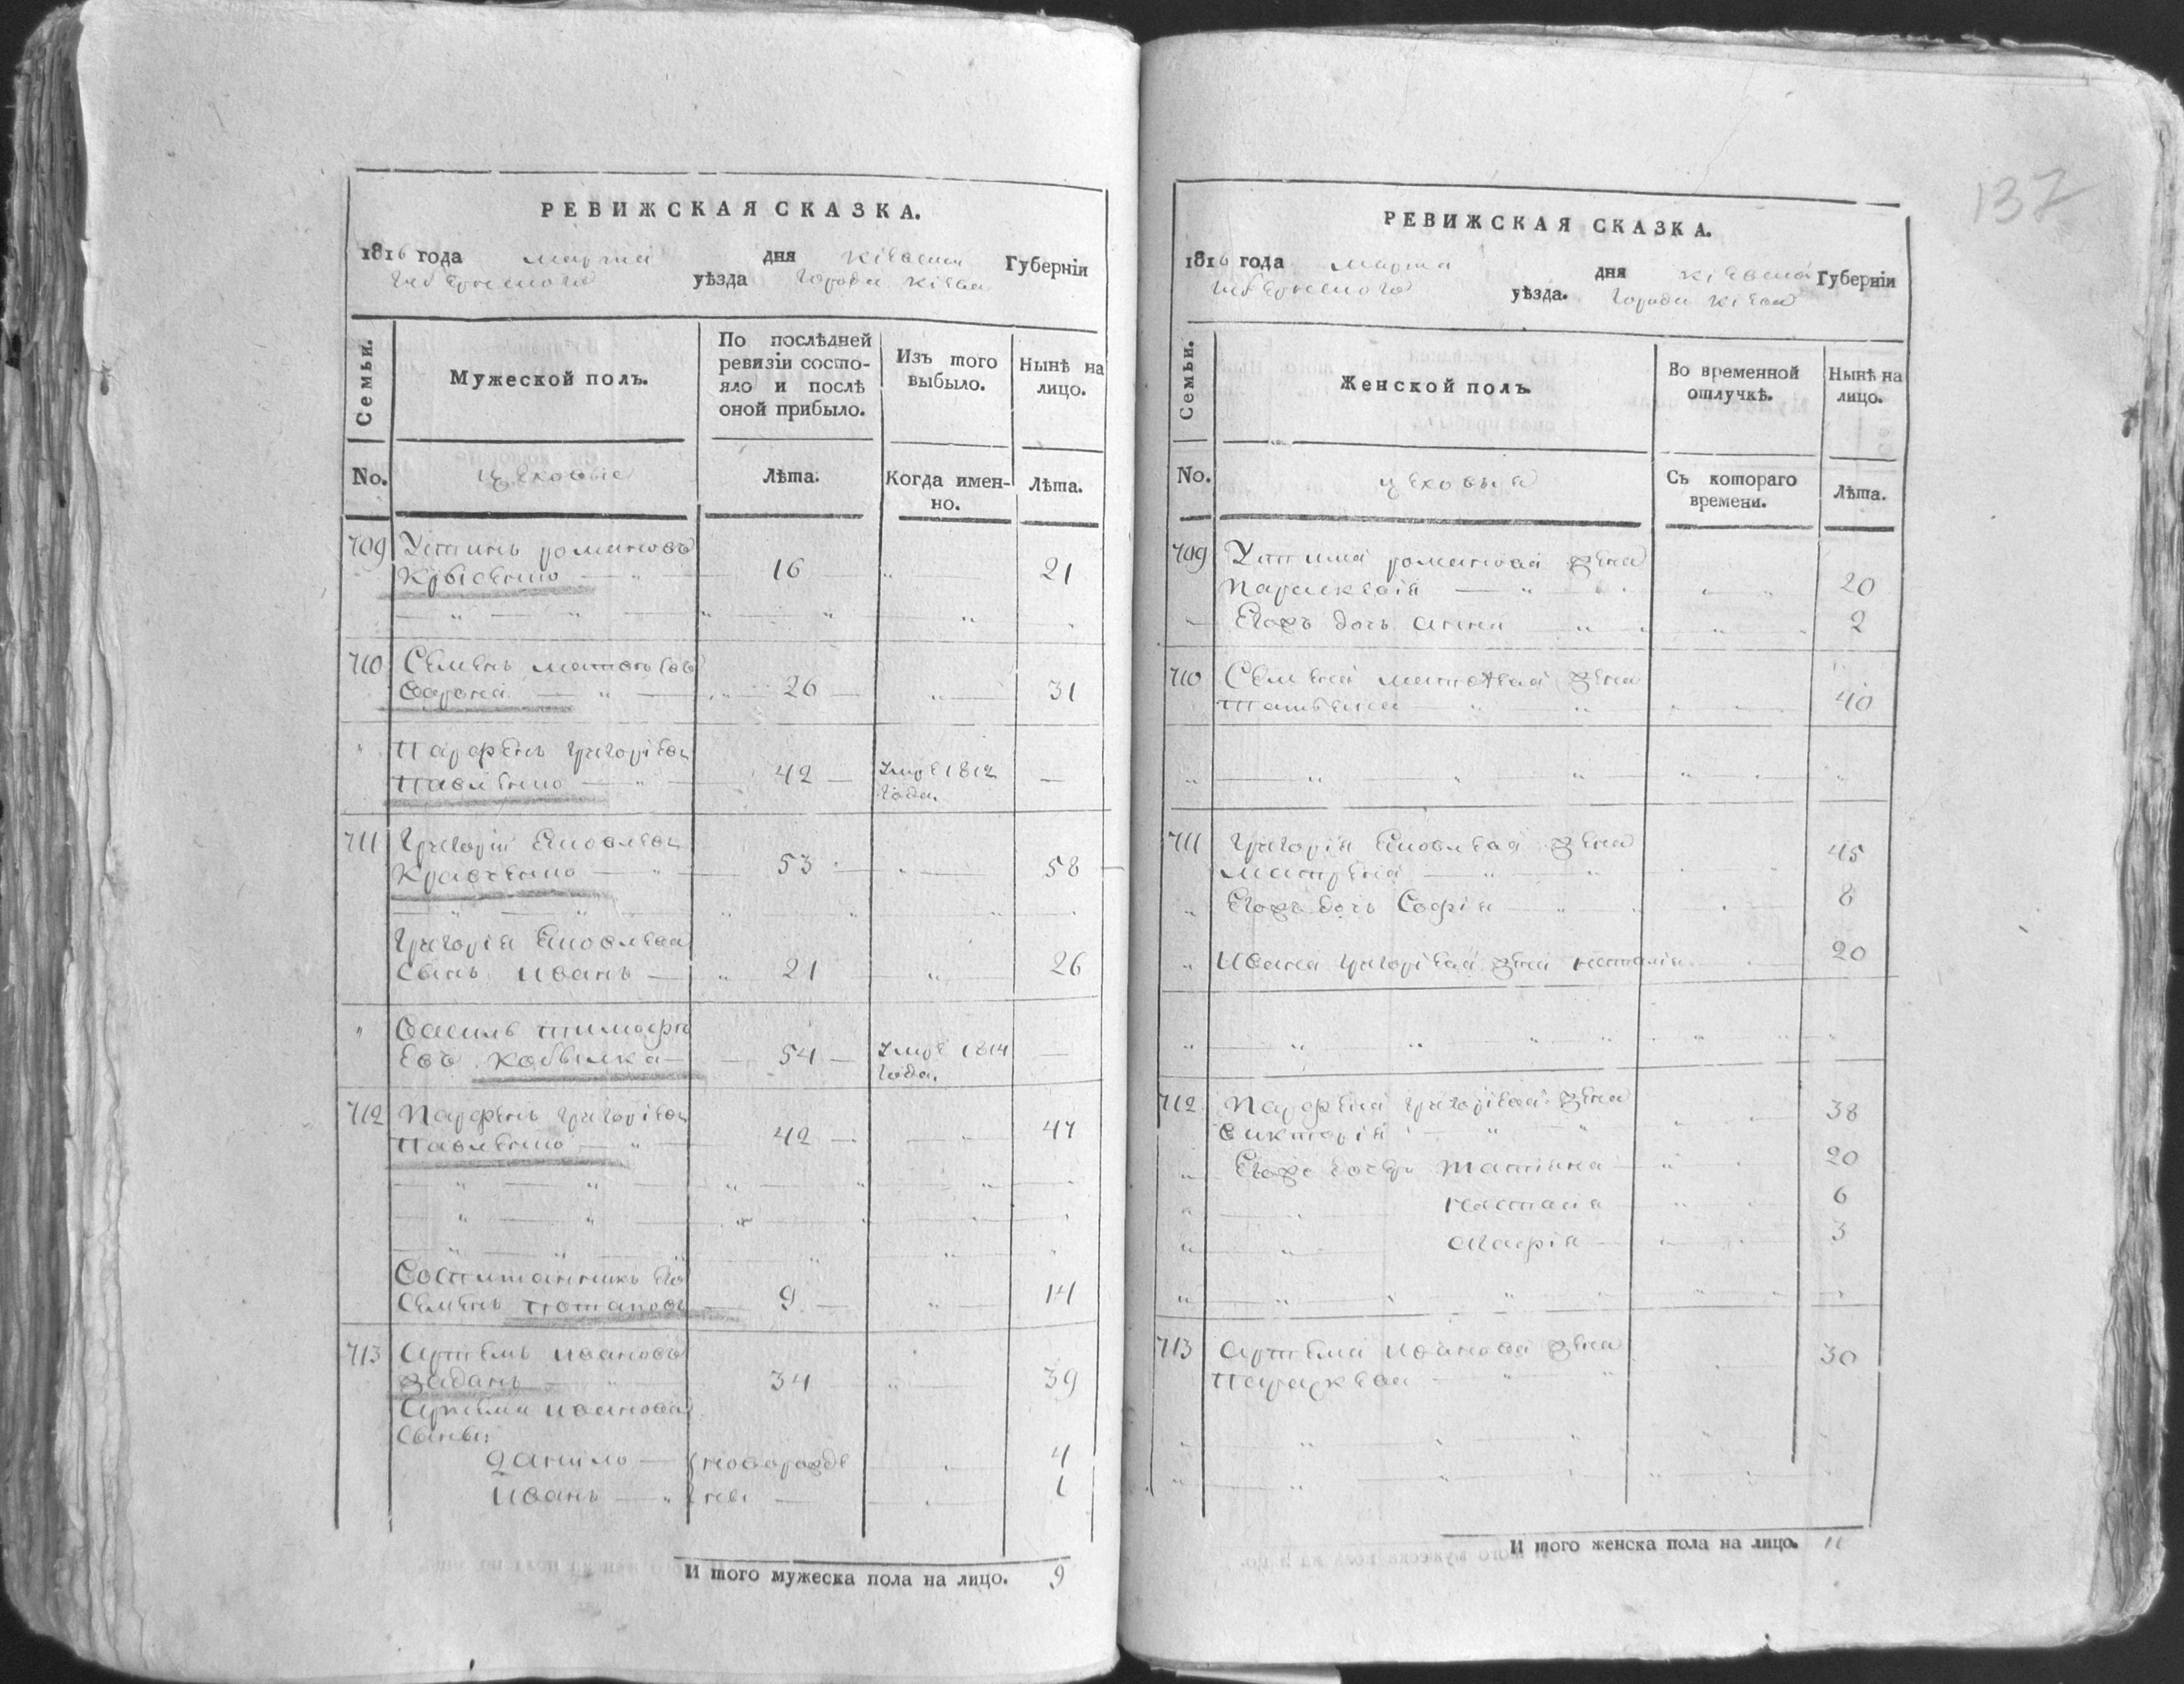 РЕВИЖСКАЯ СКАЗКА.
1816 года марта дня Кіевской Губерніи
уѣзда города Кіева
Семьи.
Мужеской полъ.
По послѣдней
ревизіи состо-
яло и послѣ
оной прибыло.
Изъ того
выбыло.
Нынѣ на
лицо.
No.
цеховые
Лѣта.
Когда имен-
но.
Лѣта.
709 Устинъ романовъ
16 21
710 Семенъ
26 31
Парфенъ григоріевъ
Павленко 42 Умре 1812
года.
711 Григорій Яковлевъ
Кравченко 53 58
Григорія Яковлева
сынъ иванъ 21 26
Василь тимофѣ
евъ Кобылка 54 Умре 1814
года.
712 Парфенъ григоріевъ
Павленко 42 47
Воспитанникъ его
Семенъ потаповъ 9 14
713 Артемъ ивановъ
34 39
Артема иванова
сыны:
Данило новорожде 4
иванъ ны 1
И того мужеска пола на лицо. 9
137
РЕВИЖСКАЯ СКАЗКА.
1816 года марта дня Кіевской Губерніи
уѣзда. города Кіева
Семьи.
Женской полъ.
Во временной
отлучкѣ.
Нынѣ на
лицо.
No.
цеховыя
Съ котораго
времени.
Лѣта.
709 Устина романова жена
Параскевія 20
Егожъ дочь анна 2
710 Семена жена
40
711 Григорія Яковлева жена
матрена 45
Егожъ дочь Софія 8
Ивана григоріева жена наталія 20
712 Парфена григоріева жена
викторія 38
татіяна 20
настасія 6
агафія 3
713 Артема иванова жена
30
И того женска пола на лицо. 11